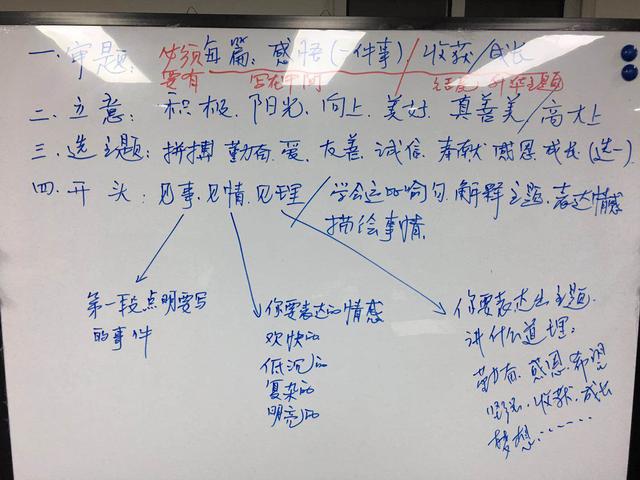 一. 审题: 必须每篇: 感悟(一件事)/收获/成长
要有 写在中间 结尾 升华主题
二. 立意: 积极、阳光、向上、美好、真善美/高大上
三. 选主题: 拼搏 勤奋 爱、友善、诚信、奉献 感恩 成长(选一)
四. 开头: 见事、见情、见理/学会运用喻句、解释主题、表达情感
描绘事情
第一段点明要写
的事件
你要表达的情感
欢快的
低沉的
复杂的
明亮的
你要表达出主题.
讲什么道理:
勤奋、感恩、希望
收获、成长
梦想......